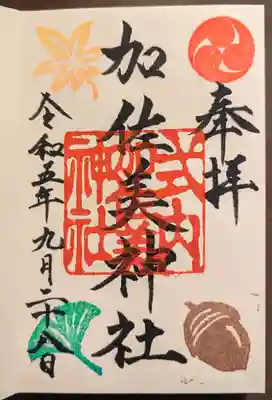 奉拝
加佐美神社
令和五年九月二十八日
式内
神社